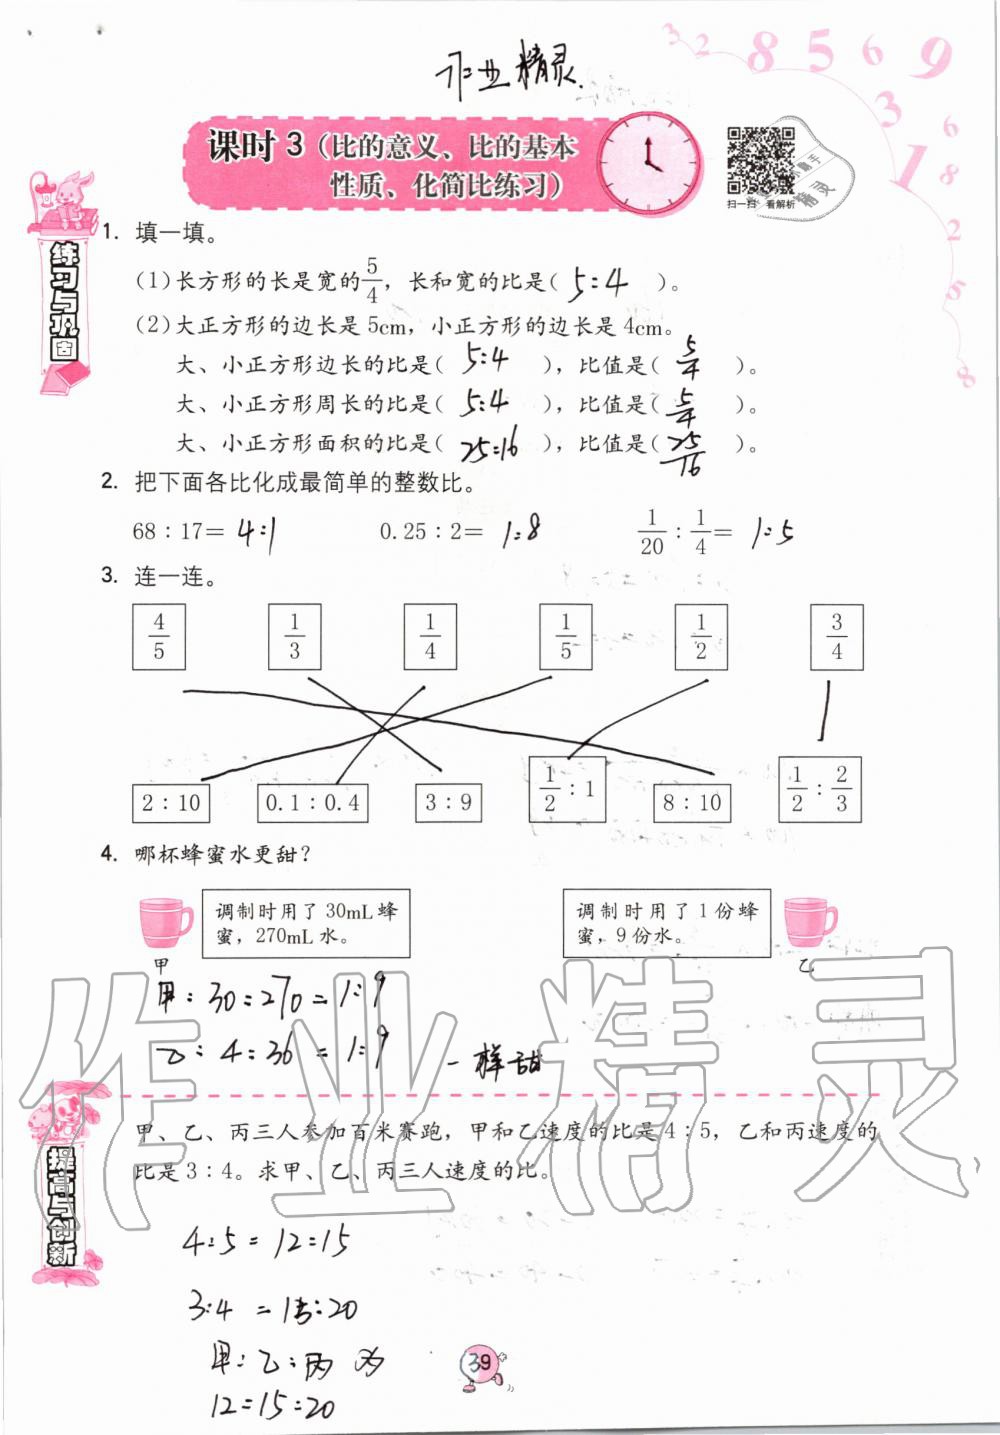 作业精灵.
3 2 8 5 6 9
3 6
1 8
2
5
8
课时 3（比的意义、比的基本
性质、化简比练习）
扫一扫 看解析
精灵
练习与巩固
1. 填一填。
(1)长方形的长是宽的5/4，长和宽的比是( 5:4 )。
(2)大正方形的边长是5cm，小正方形的边长是4cm。
大、小正方形边长的比是( 5:4 )，比值是( 5/4 )。
大、小正方形周长的比是( 5:4 )，比值是( 5/4 )。
大、小正方形面积的比是( 25:16 )，比值是( 25/16 )。
2. 把下面各比化成最简单的整数比。
68∶17= 4:1 0.25∶2= 1:8 1/20∶1/4= 1:5
3. 连一连。
4/5 1/3 1/4 1/5 1/2 3/4
2∶10 0.1∶0.4 3∶9 1/2∶1 8∶10 1/2∶2/3
4. 哪杯蜂蜜水更甜？
调制时用了30mL蜂
蜜，270mL水。
甲
调制时用了1份蜂
蜜，9份水。
乙
甲:30:270=1:9
乙:4:36=1:9 一样甜
作业精灵
提高与创新
甲、乙、丙三人参加百米赛跑，甲和乙速度的比是4∶5，乙和丙速度的
比是3∶4。求甲、乙、丙三人速度的比。
4:5=12:15
3:4=15:20
甲:乙:丙 为
12=15=20
39